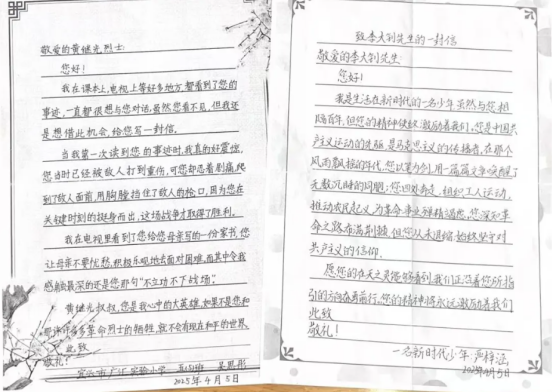 敬爱的黄继光烈士:
您好!
我在课本上,电视上等好多地方,都看到了您的
事迹,一直都很想与您对话,虽然您看不见,但我还
是想借此机会,给您写一封信。
当我第一次读到您的事迹时,我真的好震惊,
您当时已经被敌人打到重伤,可您却忍着剧痛,爬
到了敌人面前,用胸膛挡住了敌人的枪口,因为您在
关键时刻的挺身而出,这场战争才取得了胜利。
我在电视里看到了您给您母亲写的一份家书,您
让母亲不要忧愁,积极乐观地去面对困难,而其中令我
感触最深的还是您那句“不立功不下战场”。
黄继光叔叔,您是我心中的大英雄,如果不是您和
那许许多多革命烈士的牺牲,就不会有现在和平的世界,
此致
敬礼!
宜兴市广汇实验小学
2025年4月5日
致李大钊先生的一封信
敬爱的李大钊先生
您好!
我是生活在新时代的一名少年虽然与您相
隔百年,但您的精神使终激励着我们,您是中国共
产主义运动的先驱,是马克思主义的传播者,在那个
风雨飘摇的年代,您以笔为剑,用一篇篇文章唤醒了
无数沉睡的同胞;您四处奔走,组织工人运动,
推动农民起义,为革命事业殚精竭虑,您深知革
命之路布满荆棘,但您从未退缩,始终坚守对
共产主义的信仰。
愿您的在天之灵能够看到,我们正沿着您所指
引的方向奋勇前行,您的精神将永远激励着我们
此致
敬礼!
一名新时代少年:严梓涵
2025年4月5日